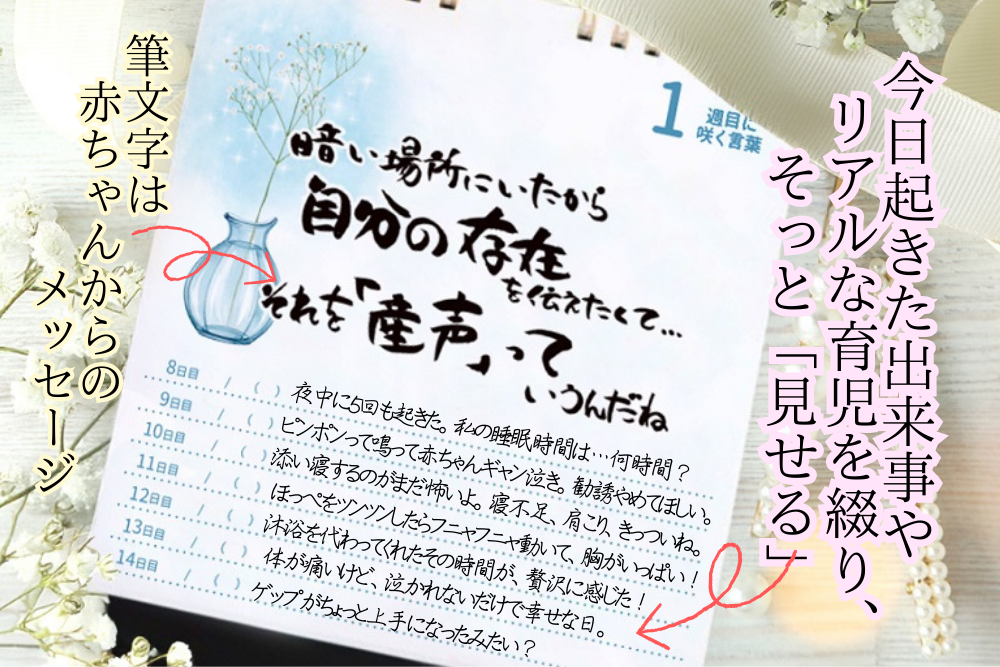 今日起きた出来事や
リアルな育児を綴り、
そっと「見せる」
筆文字は
赤ちゃんからの
メッセージ
1週目に
咲く言葉
暗い場所にいたから
自分の存在
を伝えたくて…
それを「産声」って
いうんだね
8日目 / ( ) 夜中に5回も起きた。私の睡眠時間は…何時間?
9日目 / ( ) ピンポンって鳴って赤ちゃんギャン泣き。勧誘やめてほしい。
10日目 / ( ) 添い寝するのがまだ怖いよ。寝不足、肩こり、きっついね。
11日目 / ( ) ほっぺをツンツンしたらフニャフニャ動いて、胸がいっぱい!
12日目 / ( ) 沐浴を代わってくれたその時間が、贅沢に感じた!
13日目 / ( ) 体が痛いけど、泣かれないだけで幸せな日。
14日目 / ( ) ゲップがちょっと上手になったみたい?